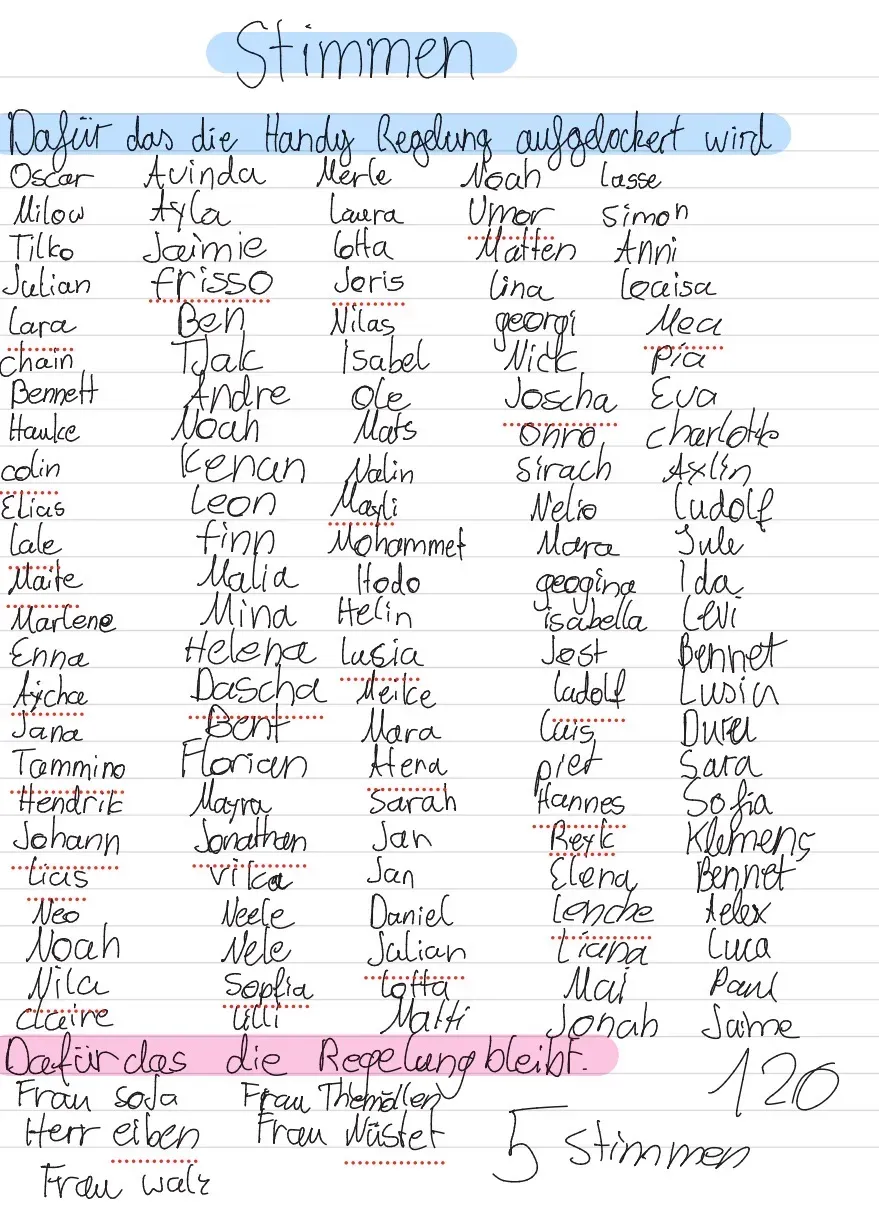 Stimmen
Dafür das die Handy Regelung aufgelockert wird
Oscar Avinda Merle Noah Lasse
Milow Ayla Laura Umar Simon
Tilko Jaimie Lotta Matten Anni
Julian frisso Joris Lina Louisa
Lara Ben Nilas georgi Mea
chain TJak Isabel Nick Pia
Bennett Andre Ole Joscha Eva
Hauke Noah Mats Onno charlotte
colin Kenan Nalin Sirach Axlin
Elias Leon Mayli Nelio Ludolf
Lale finn Mohammet Mara Jule
Maite Malia Hodo geogina Ida
Marlene Mina Helin isabella Levi
Enna Helena Lusia Jost Bennet
Aycha Dascha Meike Ludolf Lusia
Jana Bent Mara Luis
Tammino Florian Hena piet Sara
Hendrik Mayra Sarah Hannes Sofia
Johann Jonathan Jan Reyk Klemens
Lias vilca Jan Elena Bennet
Neo Neele Daniel Lenche Aelex
Noah Nele Julian Liana Luca
Nila Sopfia Lotta Mai Paul
claire Lilli Matti Jonah Jaime
Dafür das die Regelung bleibt.
120
Frau soJa Frau Themöllen
Herr eiben Frau Nüstet
5 Stimmen
Frau walz